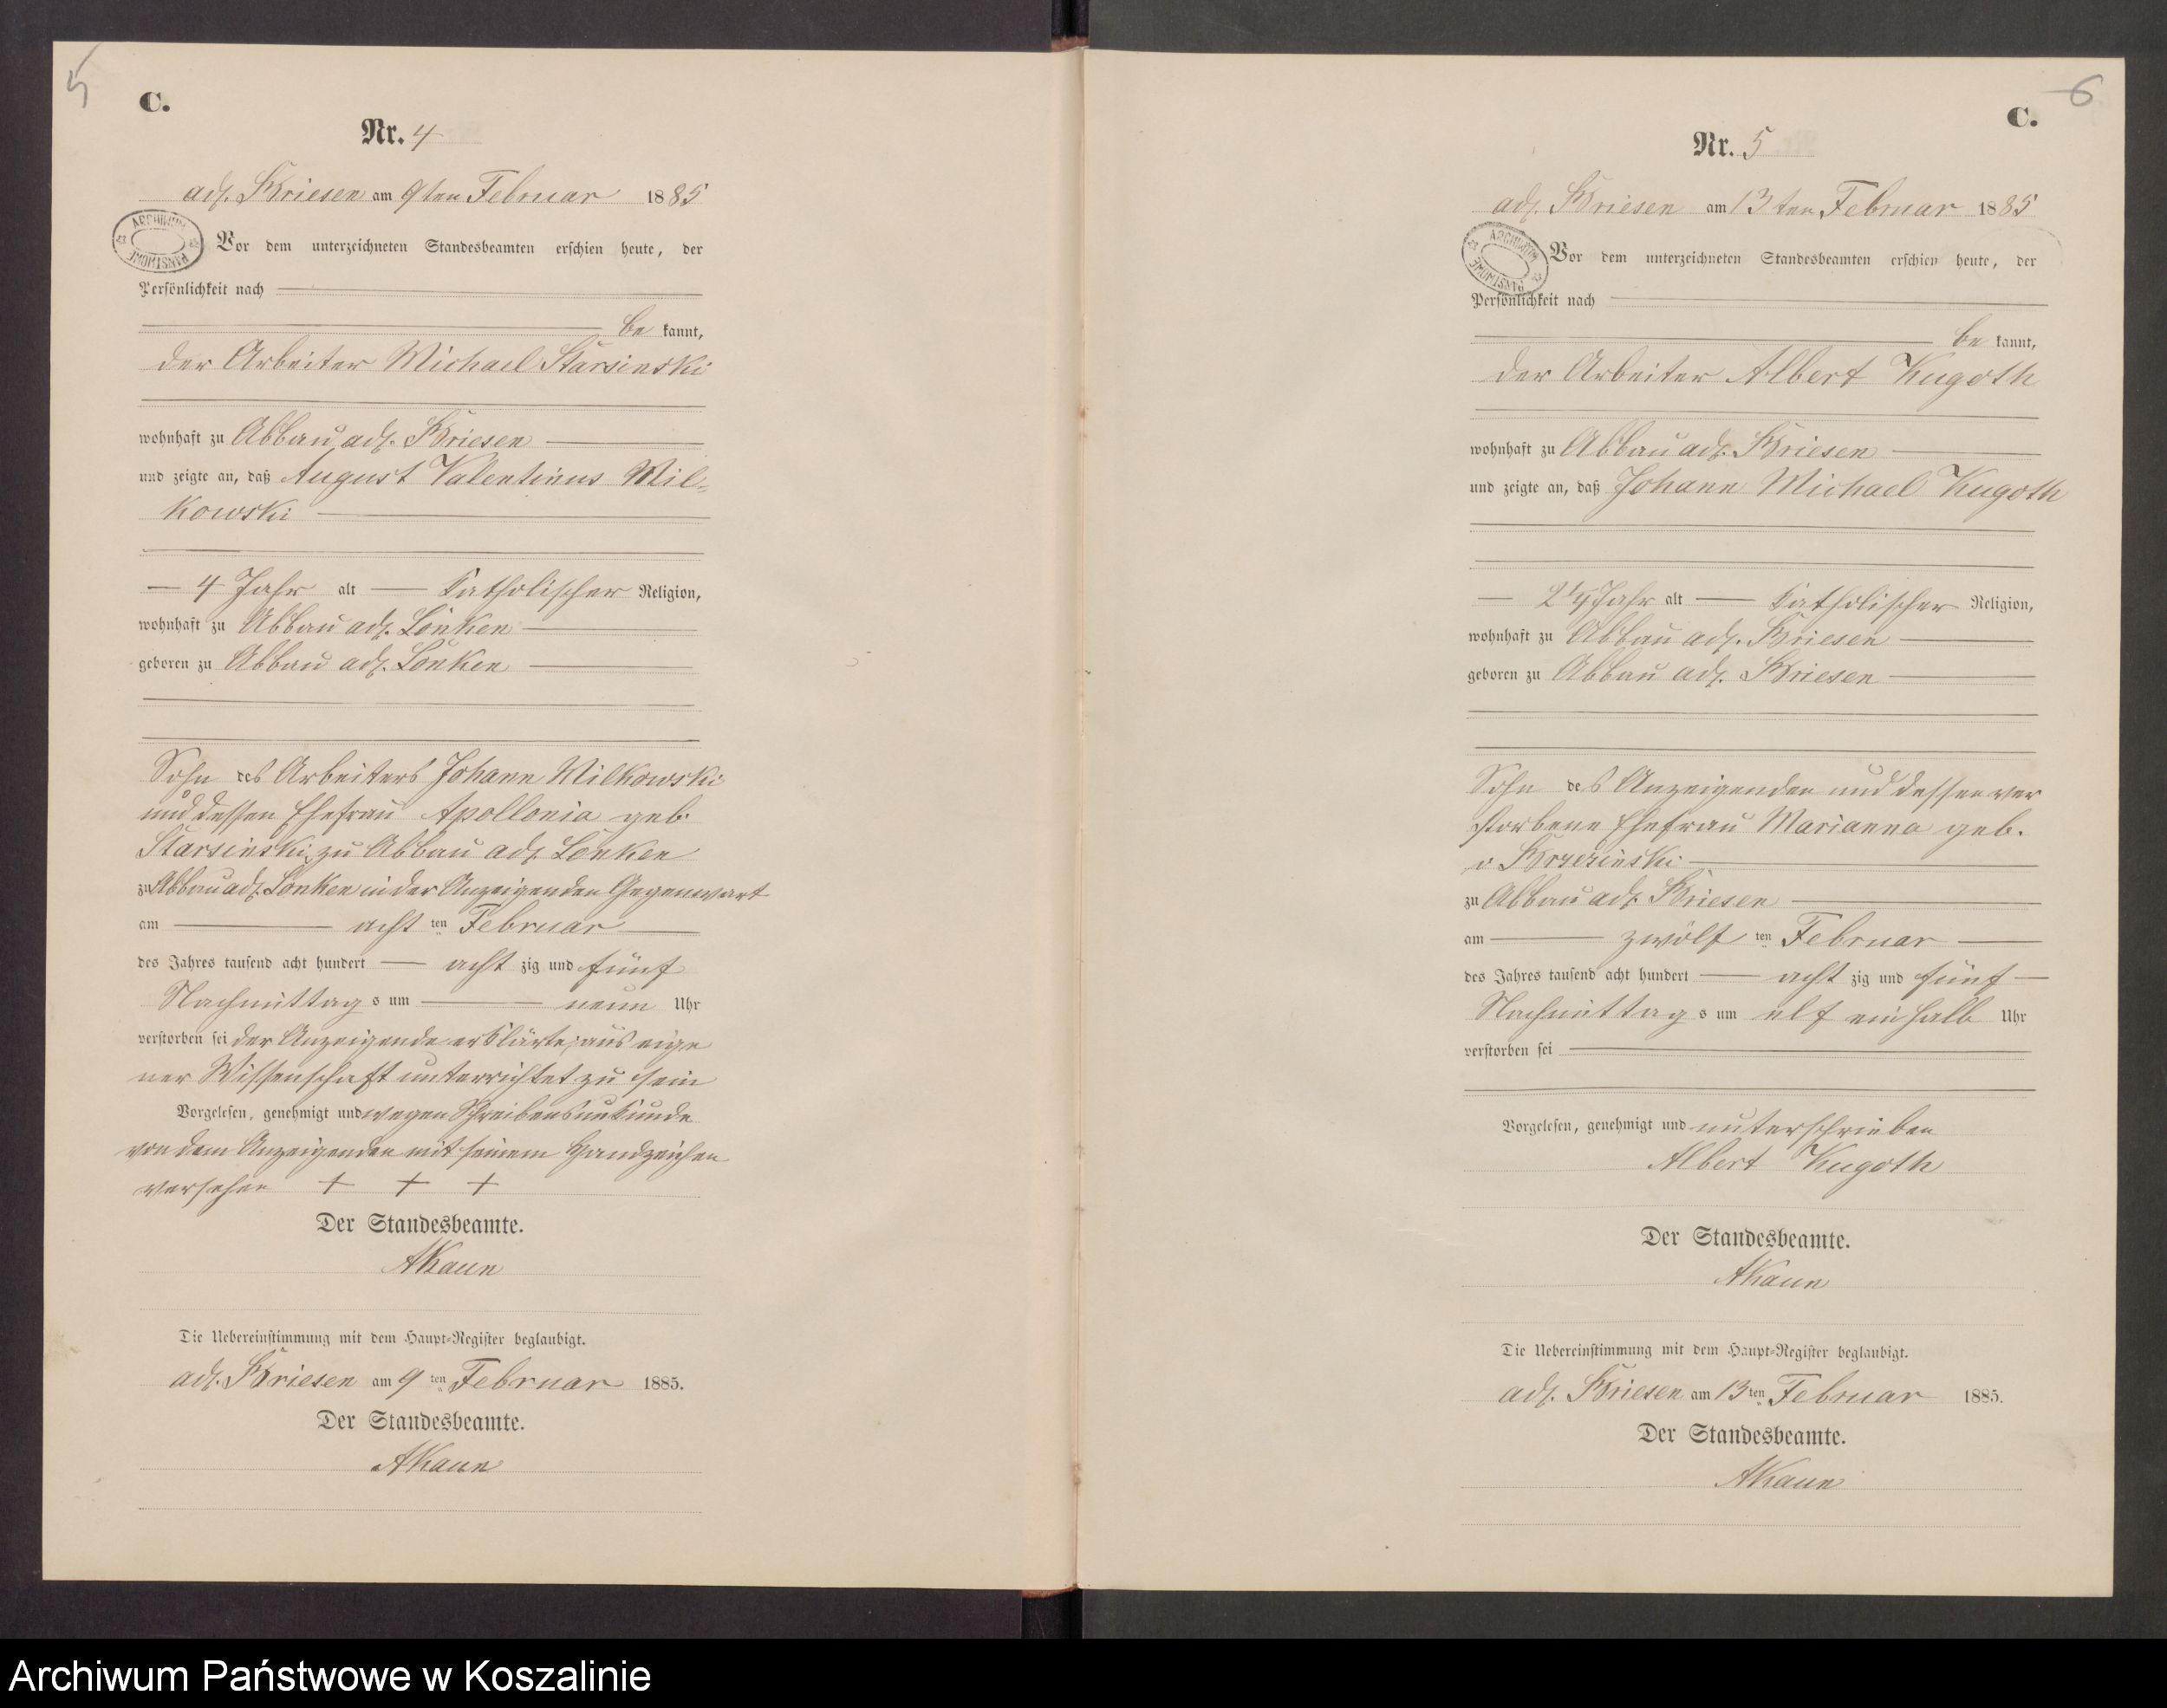 5
C.
Nr. 4
adl. Briesen am 9ten Februar 1885
ARCHIWUM PAŃSTWOWE
Vor dem unterzeichneten Standesbeamten erschien heute, der
Persönlichkeit nach
be kannt,
der Arbeiter Michael Starsinski
wohnhaft zu Abbau adl. Briesen
und zeigte an, daß August Valentinus Mil-
kowski
4 Jahr alt katholischer Religion,
wohnhaft zu Abbau adl. Lonken
geboren zu Abbau adl. Lonken
Sohn des Arbeiters Johann Milkowski
und dessen Ehefrau Apollonia geb.
Starsinski, zu Abbau adl. Lonken
zu Abbau adl. Lonken in der Anzeigenden Gegenwart
am acht ten Februar
des Jahres tausend acht hundert acht zig und fünf
Nachmittag s um neun Uhr
verstorben sei der Anzeigende erklärte, aus eige
ner Wissenschaft unterrichtet zu sein
Vorgelesen, genehmigt und wegen Schreibensunkunde
von dem Anzeigenden mit seinem Handzeichen
versehen + + +
Der Standesbeamte.
AKaun
Die Uebereinstimmung mit dem Haupt-Register beglaubigt.
adl. Briesen am 9 ten Februar 1885.
Der Standesbeamte.
AKaun
6
C.
Nr. 5
adl. Briesen am 13ten Februar 1885
ARCHIWUM PAŃSTWOWE
Vor dem unterzeichneten Standesbeamten erschien heute, der
Persönlichkeit nach
be kannt,
der Arbeiter Albert Kugoth
wohnhaft zu Abbau adl. Briesen
und zeigte an, daß Johann Michael Kugoth
24 Jahr alt katholischer Religion,
wohnhaft zu Abbau adl. Briesen
geboren zu Abbau adl. Briesen
Sohn des Anzeigenden und dessen ver
storbene Ehefrau Marianna geb.
v Brzezinski
zu Abbau adl. Briesen
am zwölf ten Februar
des Jahres tausend acht hundert acht zig und fünf
Nachmittag s um elf einhalb Uhr
verstorben sei
Vorgelesen, genehmigt und unterschrieben
Albert Kugoth
Der Standesbeamte.
AKaun
Die Uebereinstimmung mit dem Haupt-Register beglaubigt.
adl. Briesen am 13 ten Februar 1885.
Der Standesbeamte.
AKaun
Archiwum Państwowe w Koszalinie